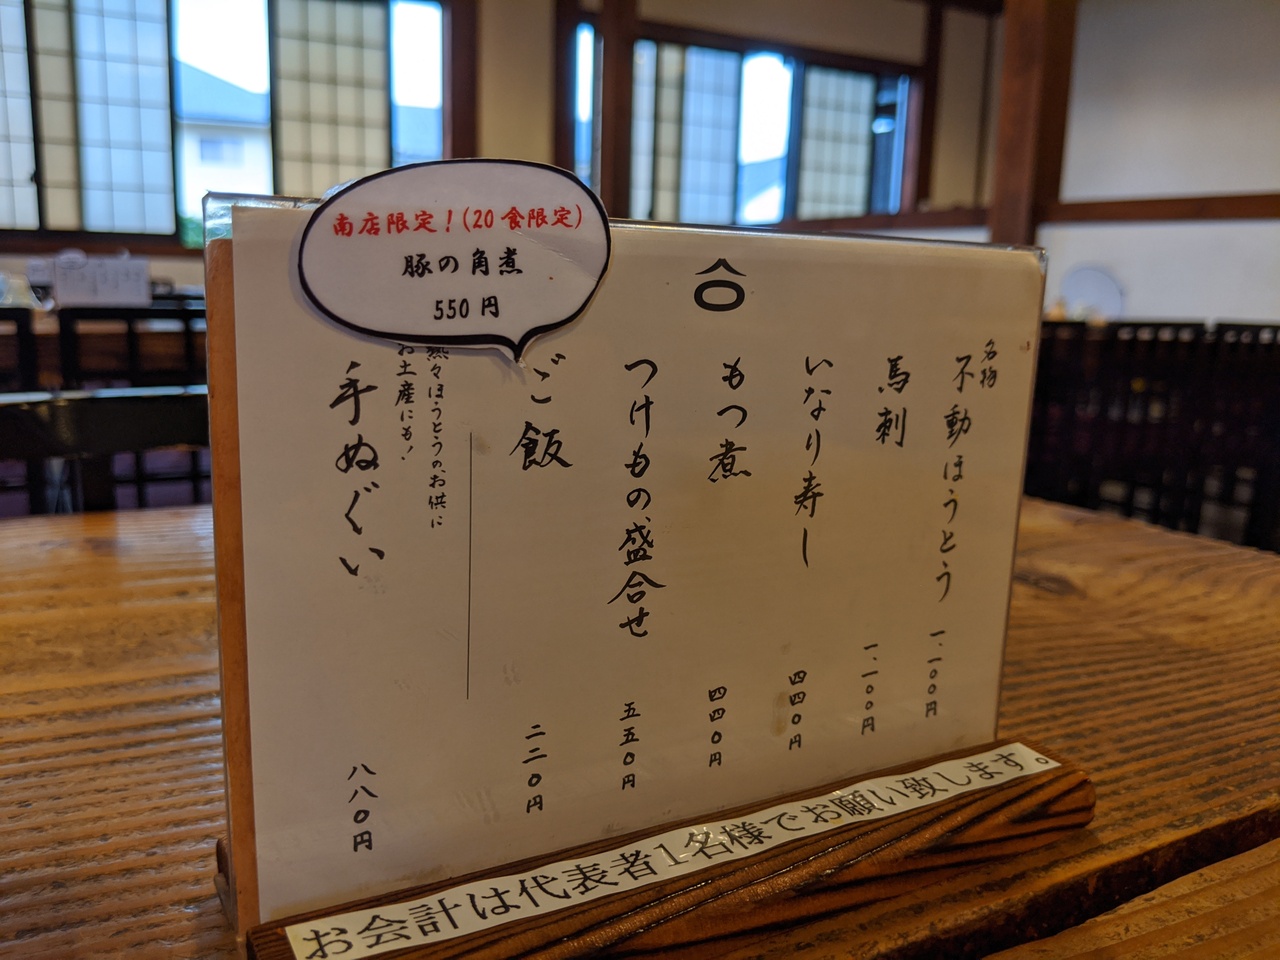 南店限定！(20食限定)
豚の角煮
550円
名物
不動ほうとう 一、一〇〇円
馬刺 一、一〇〇円
いなり寿し 四四〇円
もつ煮 四四〇円
つけもの盛合せ 五五〇円
ご飯 二二〇円
熱々ほうとうのお供に
お土産にも！
手ぬぐい 八八〇円
お会計は代表者1名様でお願い致します。